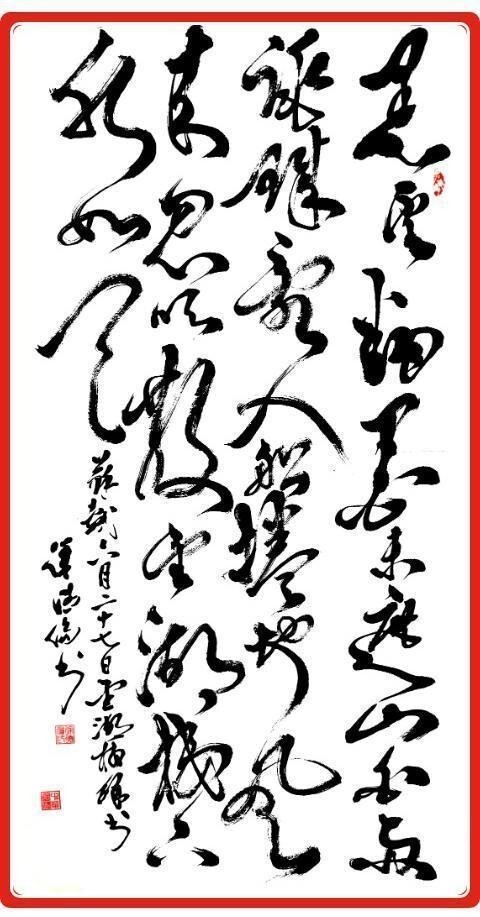 黑雲翻墨未遮山白雨
跳珠亂入船捲地風
来忽吹散望湖楼下
水如天
蘇軾六月二十七日望湖楼醉书
书